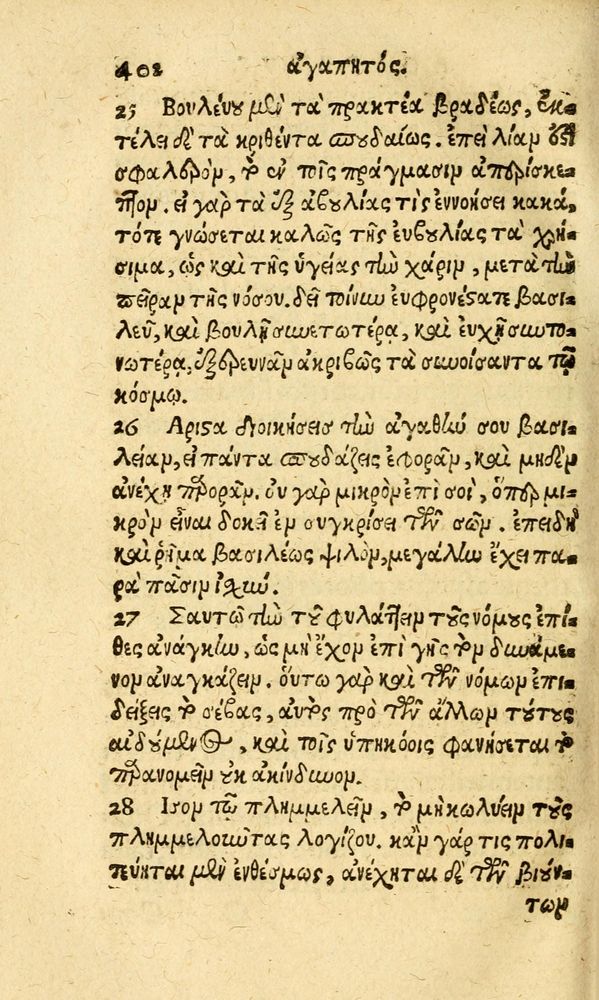 402 ἀγαπητός.
25 Βουλεύου μὲν τὰ πρακτέα βραδέως, ἐκ-
τέλει δὲ τὰ κριθέντα σπουδαίως. ἐπεὶ λίαν ἐστὶ
σφαλερὸν, τὸ ἐν τοῖς πράγμασιν ἀπερίσκε-
πτον. εἰ γὰρ τὰ ἐξ ἀβουλίας τὶς ἐννοήσει κακά,
τότε γνώσεται καλῶς τῆς εὐβουλίας τὰ χρή-
σιμα, ὡς καὶ τῆς ὑγείας τὴν χάριν, μετὰ τὴν
πεῖραν τῆς νόσου. δεῖ τοίνυν ἐυφρονέστατε βασι-
λεῦ, καὶ βουλῇ συνετωτέρᾳ, καὶ ἐυχῇ συντο-
νωτέρᾳ, ἐξερευνᾶν ἀκριβῶς τὰ συνοίσαντα τῷ
κόσμῳ.
26 Αριστα διοικήσεις τὴν ἀγαθήν σου βασι-
λείαν, εἰ πάντα σπουδάζεις ἐφορᾶν, καὶ μηδὲν
ἀνέχῃ παρορᾶν. ὀυ γὰρ μικρὸν ἐπὶ σοὶ, ὅπερ μι-
κρὸν εἶναι δοκεῖ ἐν συγκρίσει τῶν σῶν. ἐπειδὴ
καὶ ῥῆμα βασιλέως ψιλὸν, μεγάλην ἔχει πα-
ρὰ πᾶσιν ἰσχύν.
27 Σαυτῷ τὴν τοῦ φυλάττειν τοὺς νόμους ἐπί-
θες ἀνάγκην, ὡς μὴ ἔχον ἐπὶ γῆς τὸν δυνάμε-
νον ἀναγκάζειν. ὅυτω γὰρ καὶ τῶν νόμων ἐπι-
δείξεις τὸ σέβας, αὐτὸς πρὸ τῶν ἄλλων τούτους
αἰδούμενος, καὶ τοῖς ὑπηκόοις φανήσεται τὸ
παρανομεῖν οὐκ ἀκίνδυνον.
28 Ισον τῷ πλημμελεῖν, τὸ μὴ κωλύειν τοὺς
πλημμελοῦντας λογίζου. κἂν γάρ τις πολι-
τεύηται μὲν ἐνθέσμως, ἀνέχηται δὲ τῶν βιούν-
των